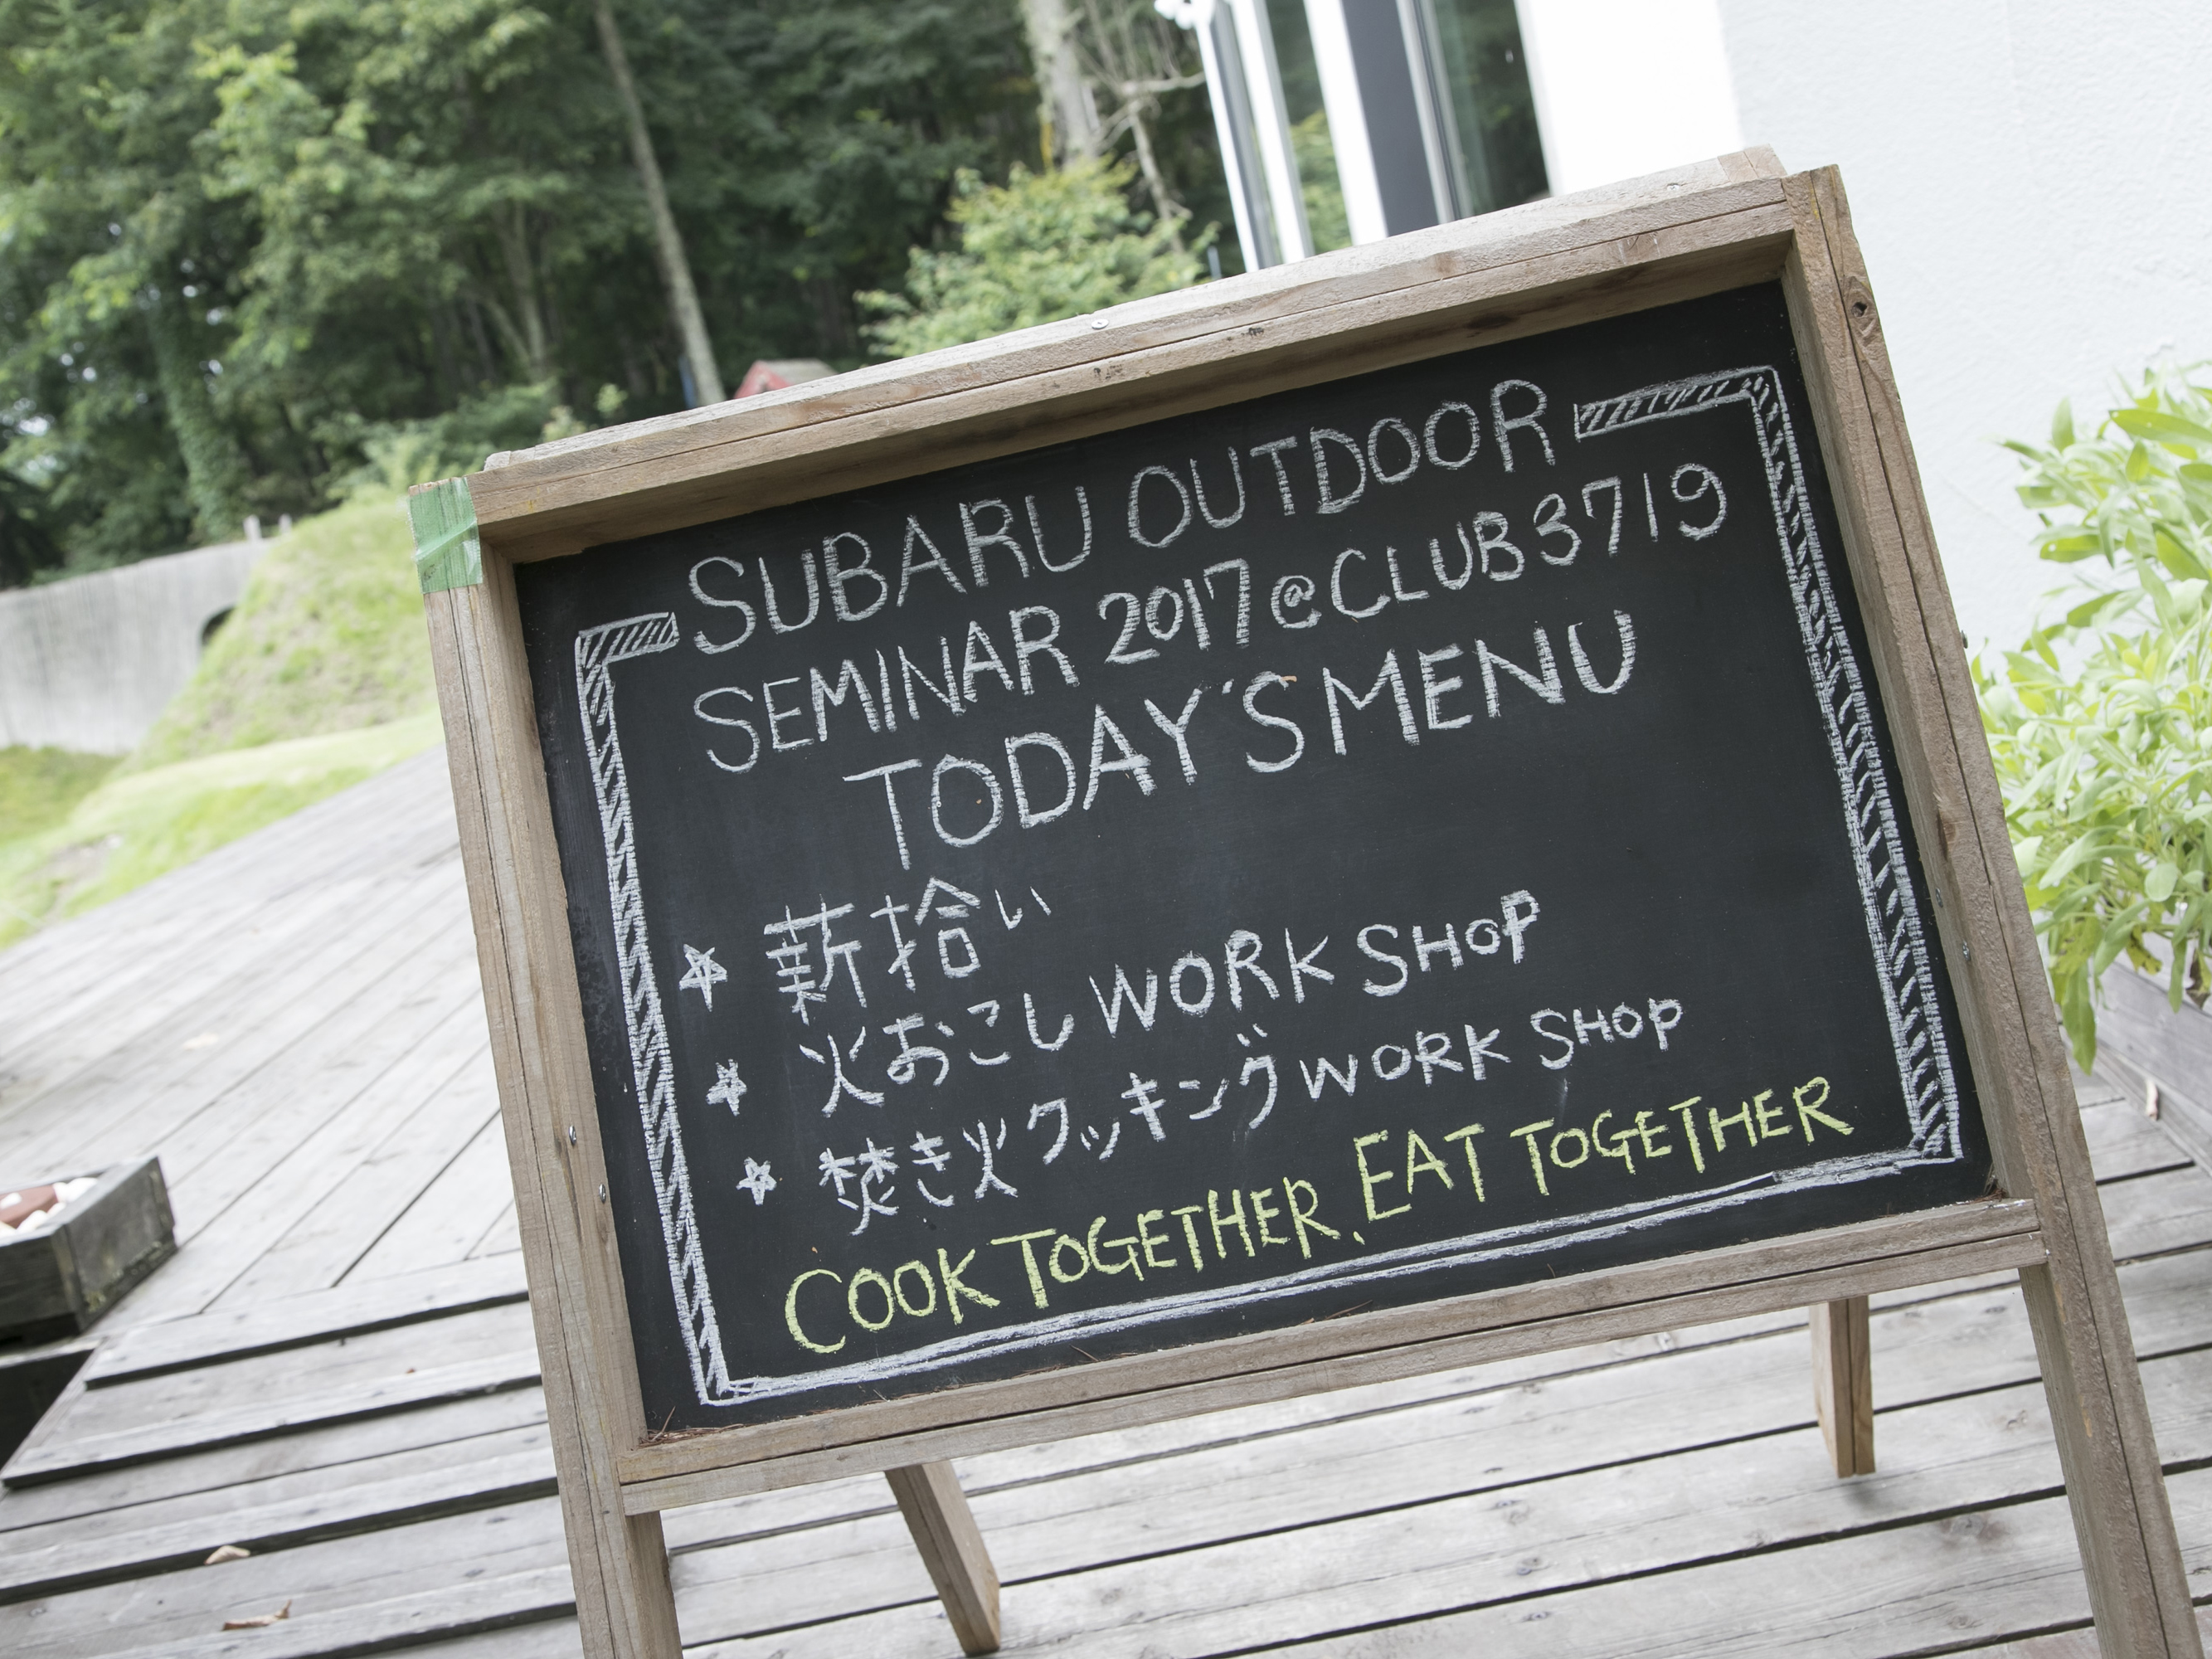 SUBARU OUTDOOR
SEMINAR 2017 @CLUB3719
TODAY'S MENU
☆ 薪拾い
☆ 火おこし WORK SHOP
☆ 焚き火クッキング WORK SHOP
COOK TOGETHER, EAT TOGETHER